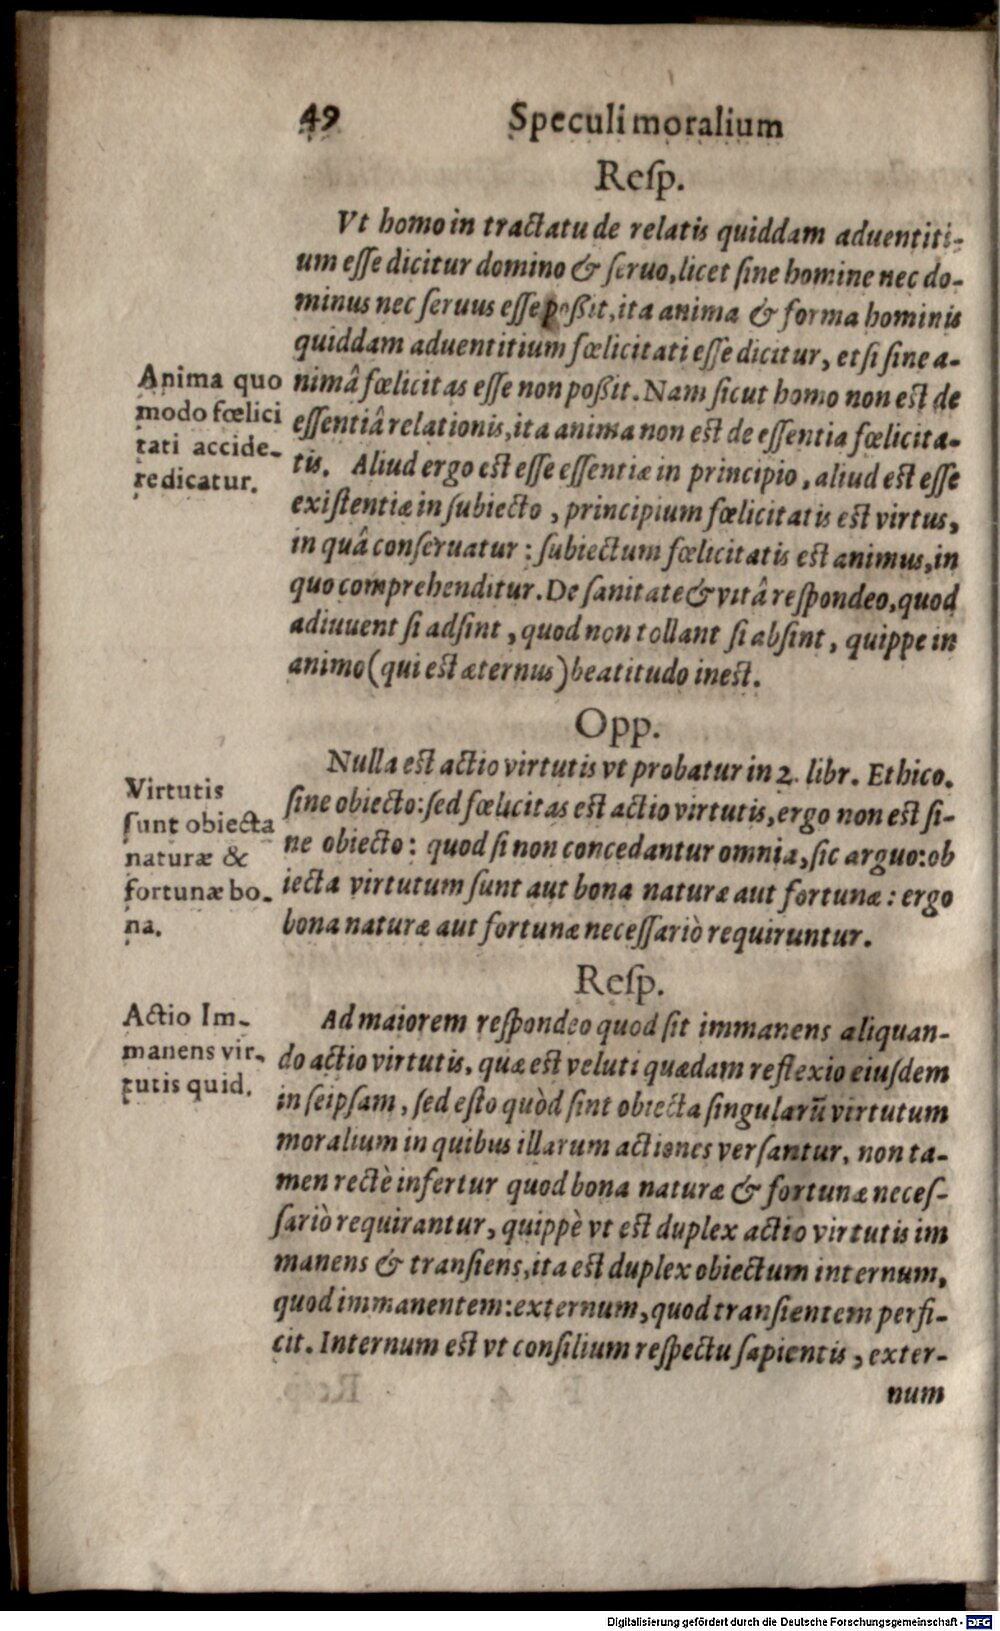 49 Speculi moralium
Resp.
Vt homo in tractatu de relatis quiddam aduentiti-
um esse dicitur domino & seruo, licet sine homine nec do-
minus nec seruus esse poßit, ita anima & forma hominis
quiddam aduentitium fœlicitati esse dicitur, et si sine a-
nimâ fœlicitas esse non poßit. Nam sicut homo non est de
essentiâ relationis, ita anima non est de essentia fœlicita-
tis. Aliud ergo est esse essentiæ in principio, aliud est esse
existentiæ in subiecto, principium fœlicitatis est virtus,
in quâ conseruatur: subiectum fœlicitatis est animus, in
quo comprehenditur. De sanitate & vitâ respondeo, quod
adiuuent si adsint, quod non tollant si absint, quippe in
animo (qui est æternus) beatitudo inest.
Anima quo
modo fœlici
tati accide-
redicatur.
Opp.
Nulla est actio virtutis vt probatur in 2. libr. Ethico.
sine obiecto: sed fœlicitas est actio virtutis, ergo non est si-
ne obiecto: quod si non concedantur omnia, sic arguo: ob
iecta virtutum sunt aut bona naturæ aut fortunæ: ergo
bona naturæ aut fortunæ necessariò requiruntur.
Virtutis
sunt obiecta
naturæ &
fortunæ bo-
na.
Resp.
Ad maiorem respondeo quod sit immanens aliquan-
do actio virtutis, quæ est veluti quædam reflexio eiusdem
in seipsam, sed esto quòd sint obiecta singularũ virtutum
moralium in quibus illarum actiones versantur, non ta-
men rectè infertur quod bona naturæ & fortunæ neces-
sariò requirantur, quippè vt est duplex actio virtutis im
manens & transiens, ita est duplex obiectum internum,
quod immanentem: externum, quod transientem perfi-
cit. Internum est vt consilium respectu sapientis, exter-
num
Actio Im-
manens vir-
tutis quid.
Digitalisierung gefördert durch die Deutsche Forschungsgemeinschaft - DFG